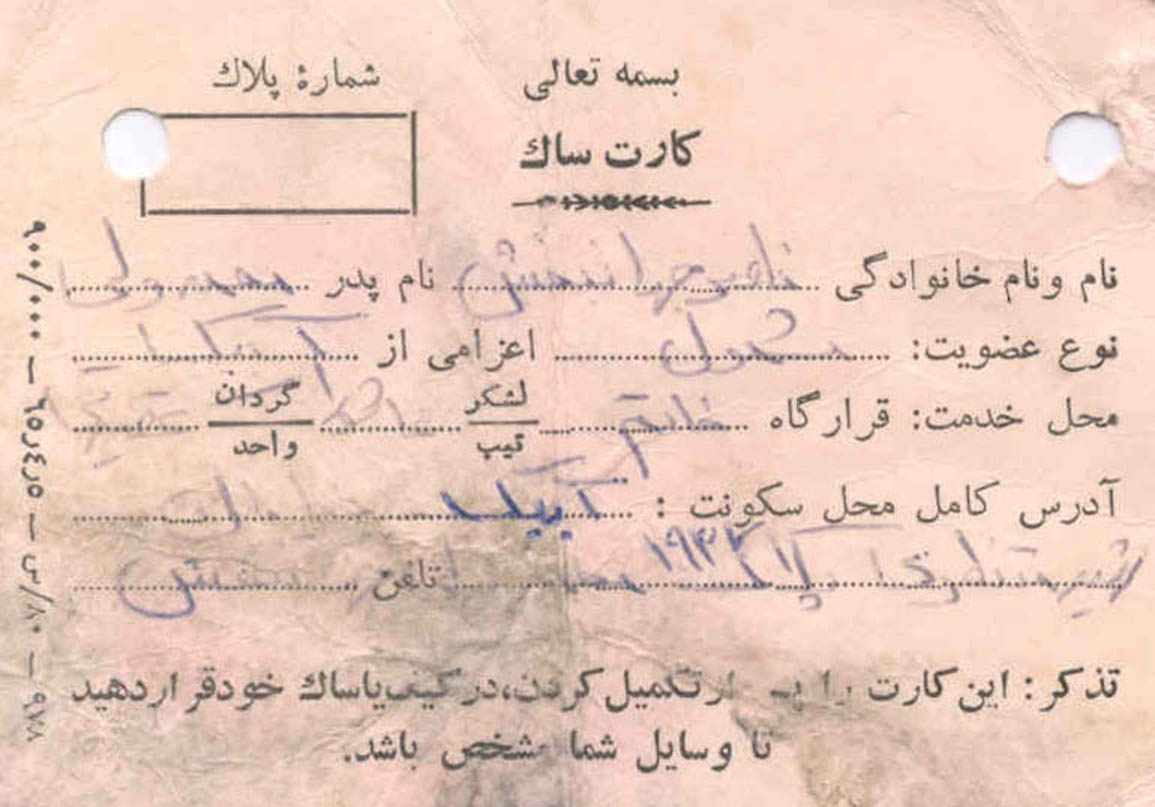 بسمه تعالی
شمارهٔ پلاك
کارت ساك
نام و نام خانوادگی ناصر جهانبخش نام پدر
نوع عضویت: مشمول اعزامی از آبیک
محل خدمت: قرارگاه خاتم لشکر تیپ گردان واحد
آدرس کامل محل سکونت : آبیک
پلاک ۱۹۳۲ تلفن
تذکر: این کارت را پس از تکمیل کردن، در کیف یا ساك خود قرار دهید
تا وسایل شما مشخص باشد.
۹۷۸ – ۸۰/س – ٦٥ر٤ر٥ – ۹۰۰/۰۰۰